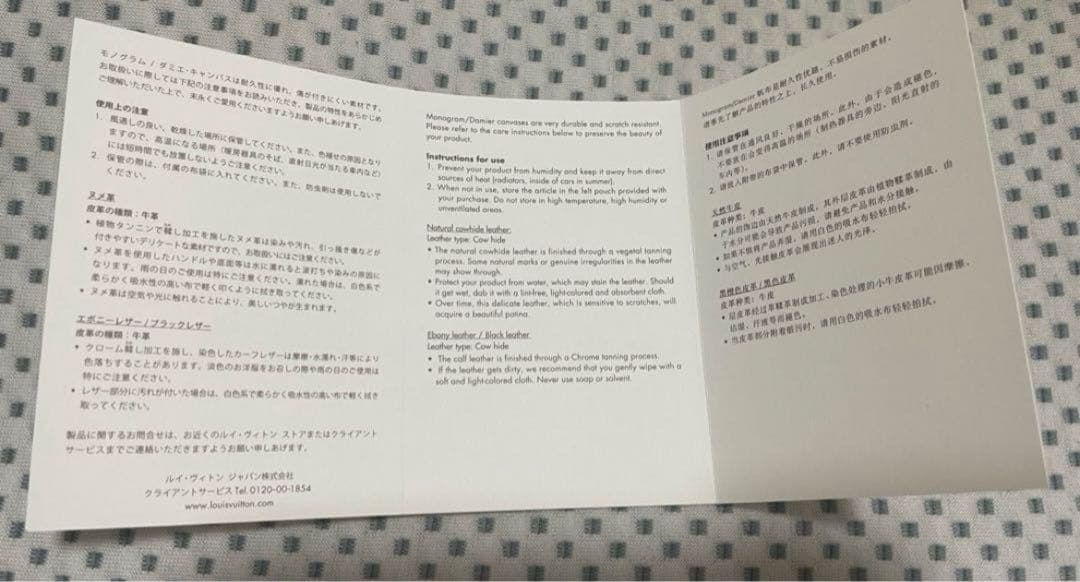 モノグラム / ダミエ・キャンバスは耐久性に優れ、傷が付きにくい素材です。
お取扱いに際しては下記の注意事項をお読みいただき、製品の特性をあらかじめ
ご理解いただいた上で、末永くご愛用くださいますようお願い申しあげます。
使用上の注意
1. 風通しの良い、乾燥した場所に保管してください。また、色褪せの原因となり
ますので、高温になる場所（暖房器具のそば、直射日光が当たる車内など）
には短時間でも放置しないようご注意ください。
2. 保管の際は、付属の布袋に入れてください。また、防虫剤は使用しないで
ください。
ヌメ革
皮革の種類：牛革
• 植物タンニンで鞣し加工を施したヌメ革は染みや汚れ、引っ掻き傷などが
付きやすいデリケートな素材ですので、お取扱いにはご注意ください。
• ヌメ革を使用したハンドルや底面等は水に濡れると波打ちや染みの原因に
なります。雨の日のご使用は特にご注意ください。濡れた場合は、白色系で
柔らかく吸水性の高い布で軽く叩くように拭き取ってください。
• ヌメ革は空気や光に触れることにより、美しいつやが生まれます。
エボニーレザー / ブラックレザー
皮革の種類：牛革
• クローム鞣し加工を施し、染色したカーフレザーは摩擦・水濡れ・汗等により
色落ちすることがあります。淡色のお洋服をお召しの際や雨の日のご使用は
特にご注意ください。
• レザー部分に汚れが付いた場合は、白色系で柔らかく吸水性の高い布で軽く拭き
取ってください。
製品に関するお問合せは、お近くのルイ・ヴィトン ストアまたはクライアント
サービスまでご連絡いただきますようお願い申しあげます。
ルイ・ヴィトン ジャパン株式会社
クライアントサービス Tel. 0120-00-1854
www.louisvuitton.com
Monogram/Damier canvases are very durable and scratch resistant.
Please refer to the care instructions below to preserve the beauty of
your product.
Instructions for use
1. Prevent your product from humidity and keep it away from direct
sources of heat (radiators, inside of cars in summer).
2. When not in use, store the article in the felt pouch provided with
your purchase. Do not store in high temperature, high humidity or
unventilated areas.
Natural cowhide leather:
Leather type: Cow hide
• The natural cowhide leather is finished through a vegetal tanning
process. Some natural marks or genuine irregularities in the leather
may show through.
• Protect your product from water, which may stain the leather. Should
it get wet, dab it with a lint-free, light-colored and absorbent cloth.
• Over time, this delicate leather, which is sensitive to scratches, will
acquire a beautiful patina.
Ebony leather / Black leather
Leather type: Cow hide
• The calf leather is finished through a Chrome tanning process.
• If the leather gets dirty, we recommend that you gently wipe with a
soft and light-colored cloth. Never use soap or solvent.
Monogram/Damier 帆布是耐久性优越、不易损伤的素材。
请事先了解产品的特性之上，长久使用。
使用注意事项
1. 请保管在通风良好、干燥的场所。此外，由于会造成褪色，
不要放在会变得高温的场所（制热器具的旁边、阳光直射的
车内等）。
2. 请放入附带的布袋中保管。此外，请不要使用防虫剂。
天然牛皮
皮革种类：牛皮
• 产品的饰边由天然牛皮制成，其外层皮革由植物鞣革制成，由
于水分可能会导致产品污损，请避免产品和水分接触。
• 如果不慎将产品弄湿，请用白色的吸水布轻轻拍拭。
• 与空气、光接触皮革会展现出迷人的光泽。
黑檀色皮革/黑色皮革
皮革种类：牛皮
• 层皮革经过革鞣革制成加工、染色处理的小牛皮革可能因摩擦、
沾湿、汗液等而褪色。
• 当皮革部分附着脏污时，请用白色的吸水布轻轻拍拭。